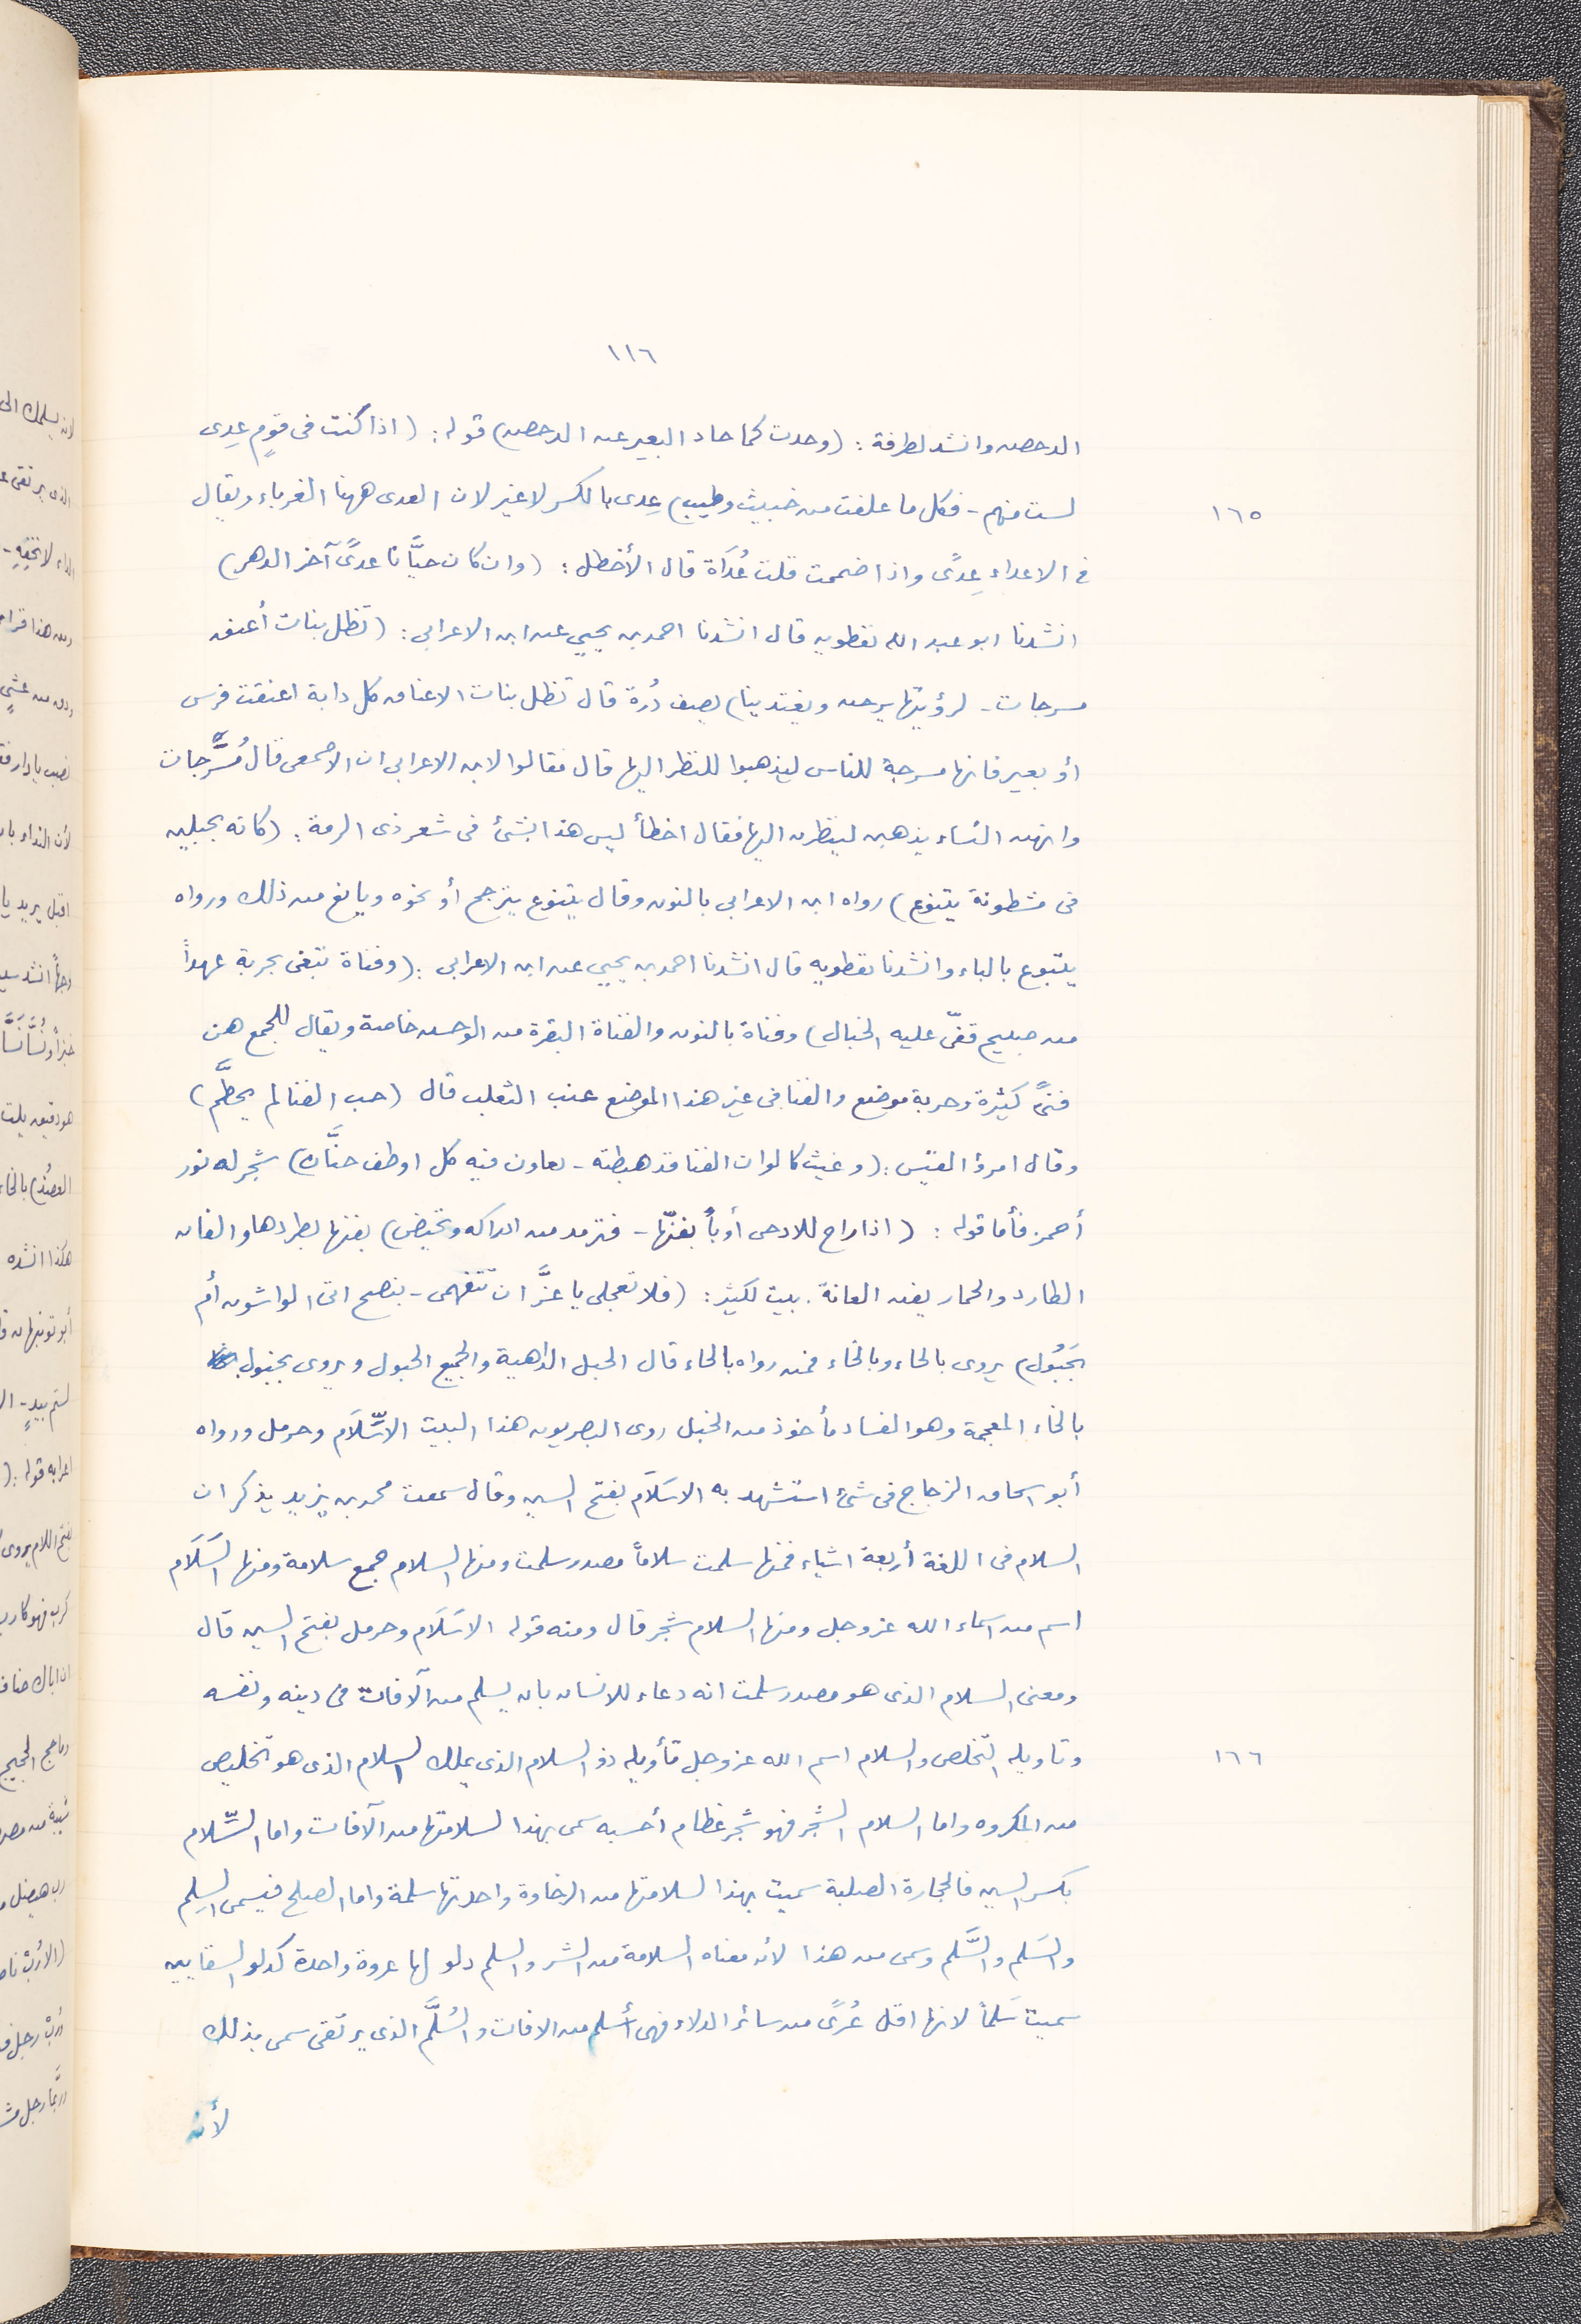 ١١٦
الدحصه وانشد لطرفة : (وحدت كما حاد البعير عن الدحصه) قوله : (اذا كنت فى قومٍ عِدى
١٦٥
لست منهم - فكل ما علفت من خبيث وطيب) عِدى بالكسر لا غير لان العدى ههنا الغرباء ويقال
فى الاعداء عِدًى واذا ضممت قلت عُدَاة قال الأخطل : (وان كان حيَّانا عدًى آخر الدهر)
انشدنا ابو عبد الله نفطويه قال انشدنا احمد بن يحيي عن ابن الاعرابى : (تظل بنات أعنق
مسرجات - لرؤيتها يرحن ويغتدينا) يصف دُرة قال تظل بنات الاعناق كل دابة اعنقت فرس
أو بعير فانها مسرجة للناس ليذهبوا للنظر اليها قال فقالوا لابن الاعرابى ان الاصمعى قال مُسَرَّجات
وانهن النساء يذهبن لينظرن اليها فقال اخطأ ليس هذا بشئ فى شعر ذى الرمة : (كانه بحبلين
فى مشطونة يتنوع) رواه ابن الاعرابى بالنون وقال يتنوع يترجح أو نحوه ويانع من ذلك ورواه
يتبوع بالباء وانشدنا نفطويه قال انشدنا احمد بن يحيي عن ابن الاعرابى : (وفناة تبغى بحربة عهداً
من صبيح قفّى عليه الخبال) وفناة بالنون والفناة البقرة من الوحش خاصة ويقال للجمع هن
فنىً كثيرة وحربة موضع والفنا فى غير هذا الموضع عنب الثعلب قال (حب الفنا لم يحطَّم)
وقال امرؤ القيس : (وغيث كالوان الفنا قد هبطته - تعاون فيه كل اوطف حنَّان) شجر له نور
أحمر فأما قوله : (اذا راح للادحى أوباً يفنّها - فترمد من ادراكه وتحيض) يفنها يطردها والفان
الطارد والحمار يفن العانة . بيت لكثير : (فلا تعجلى يا عزَّ ان تتفهمى - بنصح اتى الواشون أم
بحُبُول) يروى بالحاء وبالخاء فمن رواه بالحاء قال الحبل الداهية والجميع الحبول ويروى بخبول
بالخاء المعجمة وهو الفساد مأخوذ من الخبل روى البصريون هذا البيت الا سِّلَام وحرمل ورواه
أبو اسحاق الزجاج فى شئ استشهد به الا سَلَام بفتح السين وقال سمعت محمد بن يزيد يذكر ان
السلام فى اللغة أربعة اشياء فمنها سلمت سلاماً مصدر سلمت ومنها السلام جمع سلامة ومنها السَلَام
اسم من اسماء الله عز وجل ومنها السلام شجر قال ومنه قوله الا سَلَام وحرمل بفتح السين قال
ومعنى السلام الذى هو مصدر سلمت انه دعاء للانسان بان يسلم من الآفات فى دينه ونفسه
١٦٦
وتاويله التخلص والسلام اسم الله عز وجل تأويله ذو السلام الذى يملك السلام الذى هو تخليص
من المكروه واما السلام الشجر فهو شجر عظام أحسبه سمى بهذا لسلامتها من الآفات واما السِّلام
بكسر السين فالحجارة الصلبة سميت بهذا لسلامتها من الرخاوة واحدتها سلمة واما الصلح فيسمى السِلم
والسَلم والسَّلم وسمى من هذا لأن معناه السلامة من الشر والسلم دلو لها عروة واحدة كدلو السقايين
سميت سَلماً لانها اقل عُرًى من سائر الدلاء فهى أسلم من الافات والسُلَّم الذى يرتقى سمى بذلك
لأنه